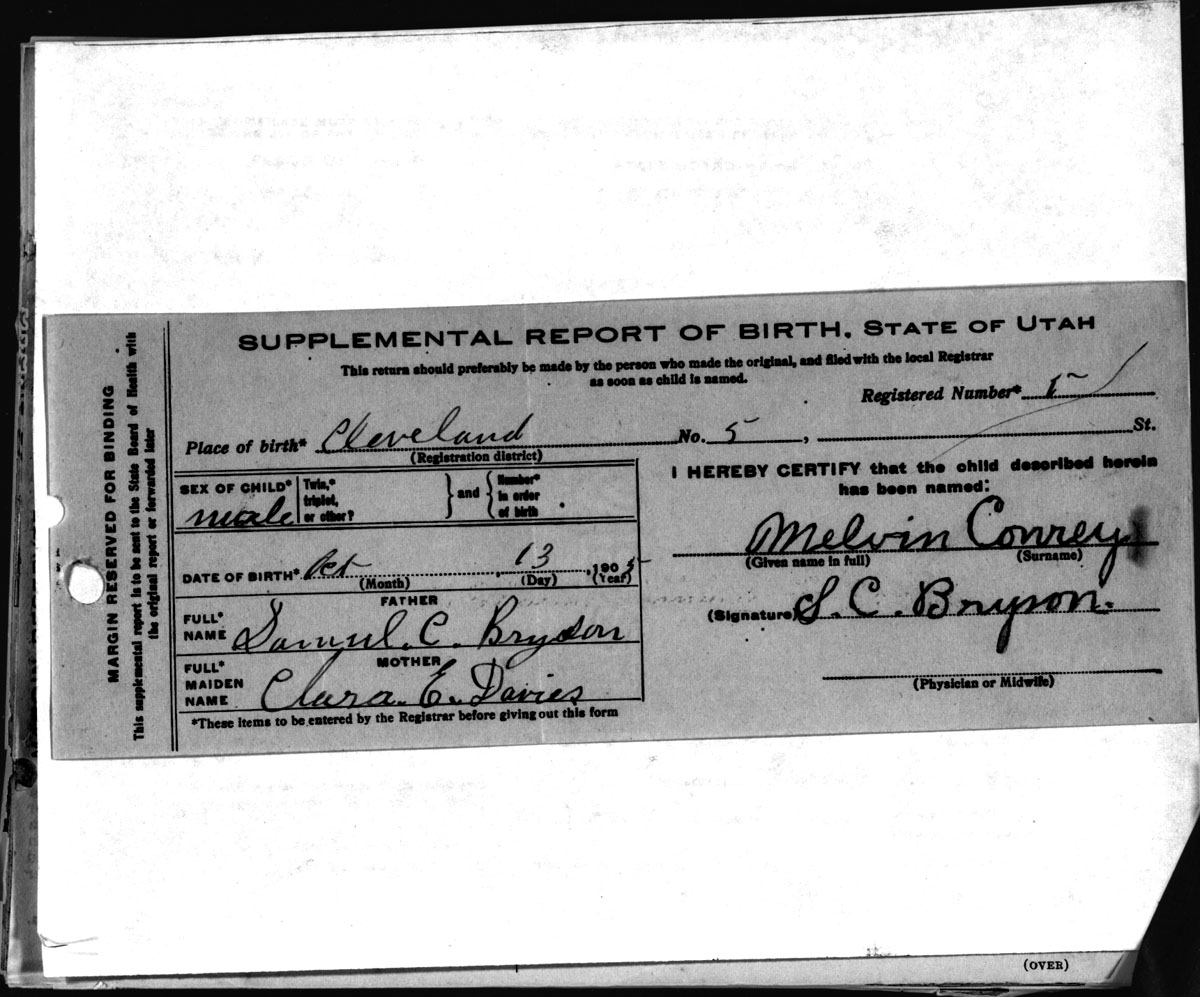 SUPPLEMENTAL REPORT OF BIRTH, STATE OF UTAH
This return should preferably be made by the person who made the original, and filed with the local Registrar
as soon as child is named.
Registered Number*
Place of birth* Cleveland No. 5, St.
(Registration district)
SEX OF CHILD* male
Twin,* triplet, or other?
and
Number* in order of birth
DATE OF BIRTH* Oct 13, 1905
(Month) (Day) (Year)
FATHER
FULL* NAME Samuel. C. Bryson
MOTHER
FULL* MAIDEN NAME Clara. E. Davies
*These items to be entered by the Registrar before giving out this form
I HEREBY CERTIFY that the child described herein
has been named:
Melvin Conrey
(Given name in full) (Surname)
(Signature) S. C. Bryson.
(Physician or Midwife)
MARGIN RESERVED FOR BINDING
This supplemental report is to be sent to the State Board of Health with
the original report or forwarded later
(OVER)